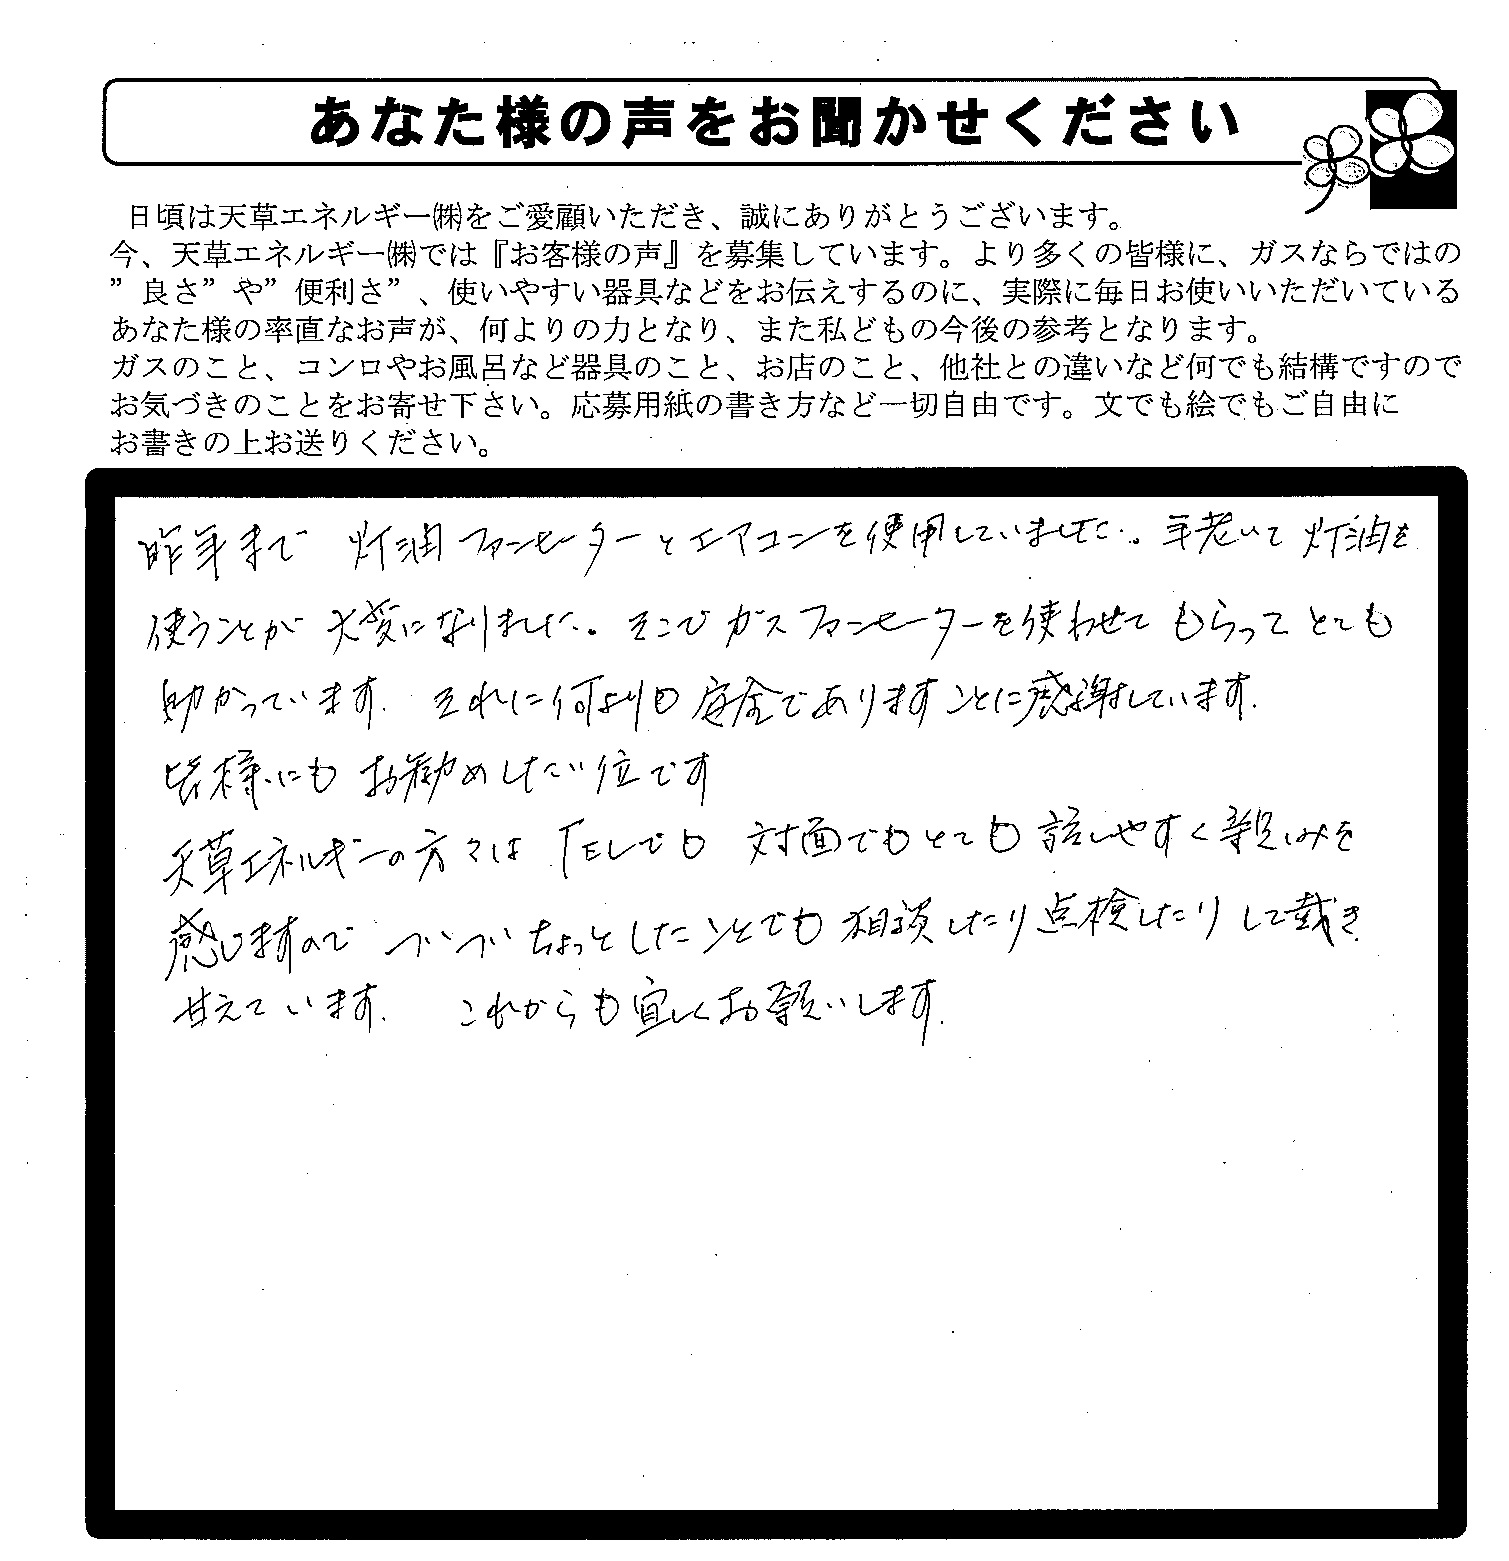 あなた様の声をお聞かせください
日頃は天草エネルギー㈱をご愛顧いただき、誠にありがとうございます。
今、天草エネルギー㈱では『お客様の声』を募集しています。より多くの皆様に、ガスならではの
”良さ”や”便利さ”、使いやすい器具などをお伝えするのに、実際に毎日お使いいただいている
あなた様の率直なお声が、何よりの力となり、また私どもの今後の参考となります。
ガスのこと、コンロやお風呂など器具のこと、お店のこと、他社との違いなど何でも結構ですので
お気づきのことをお寄せ下さい。応募用紙の書き方など一切自由です。文でも絵でもご自由に
お書きの上お送りください。
昨年まで 灯油ファンヒーターとエアコンを使用していました。年老いて灯油を
使うことが大変になりました。そこでガスファンヒーターを使わせてもらってとても
助かっています. それに何よりも安全でありますことに感謝しています.
皆様にもお勧めしたい位です
天草エネルギーの方々は TELでも 対面でもとても話しやすく親しみを
感じますので ついついちょっとしたことでも相談したり点検したりして戴き
甘えています. これからも宜しくお願いします.